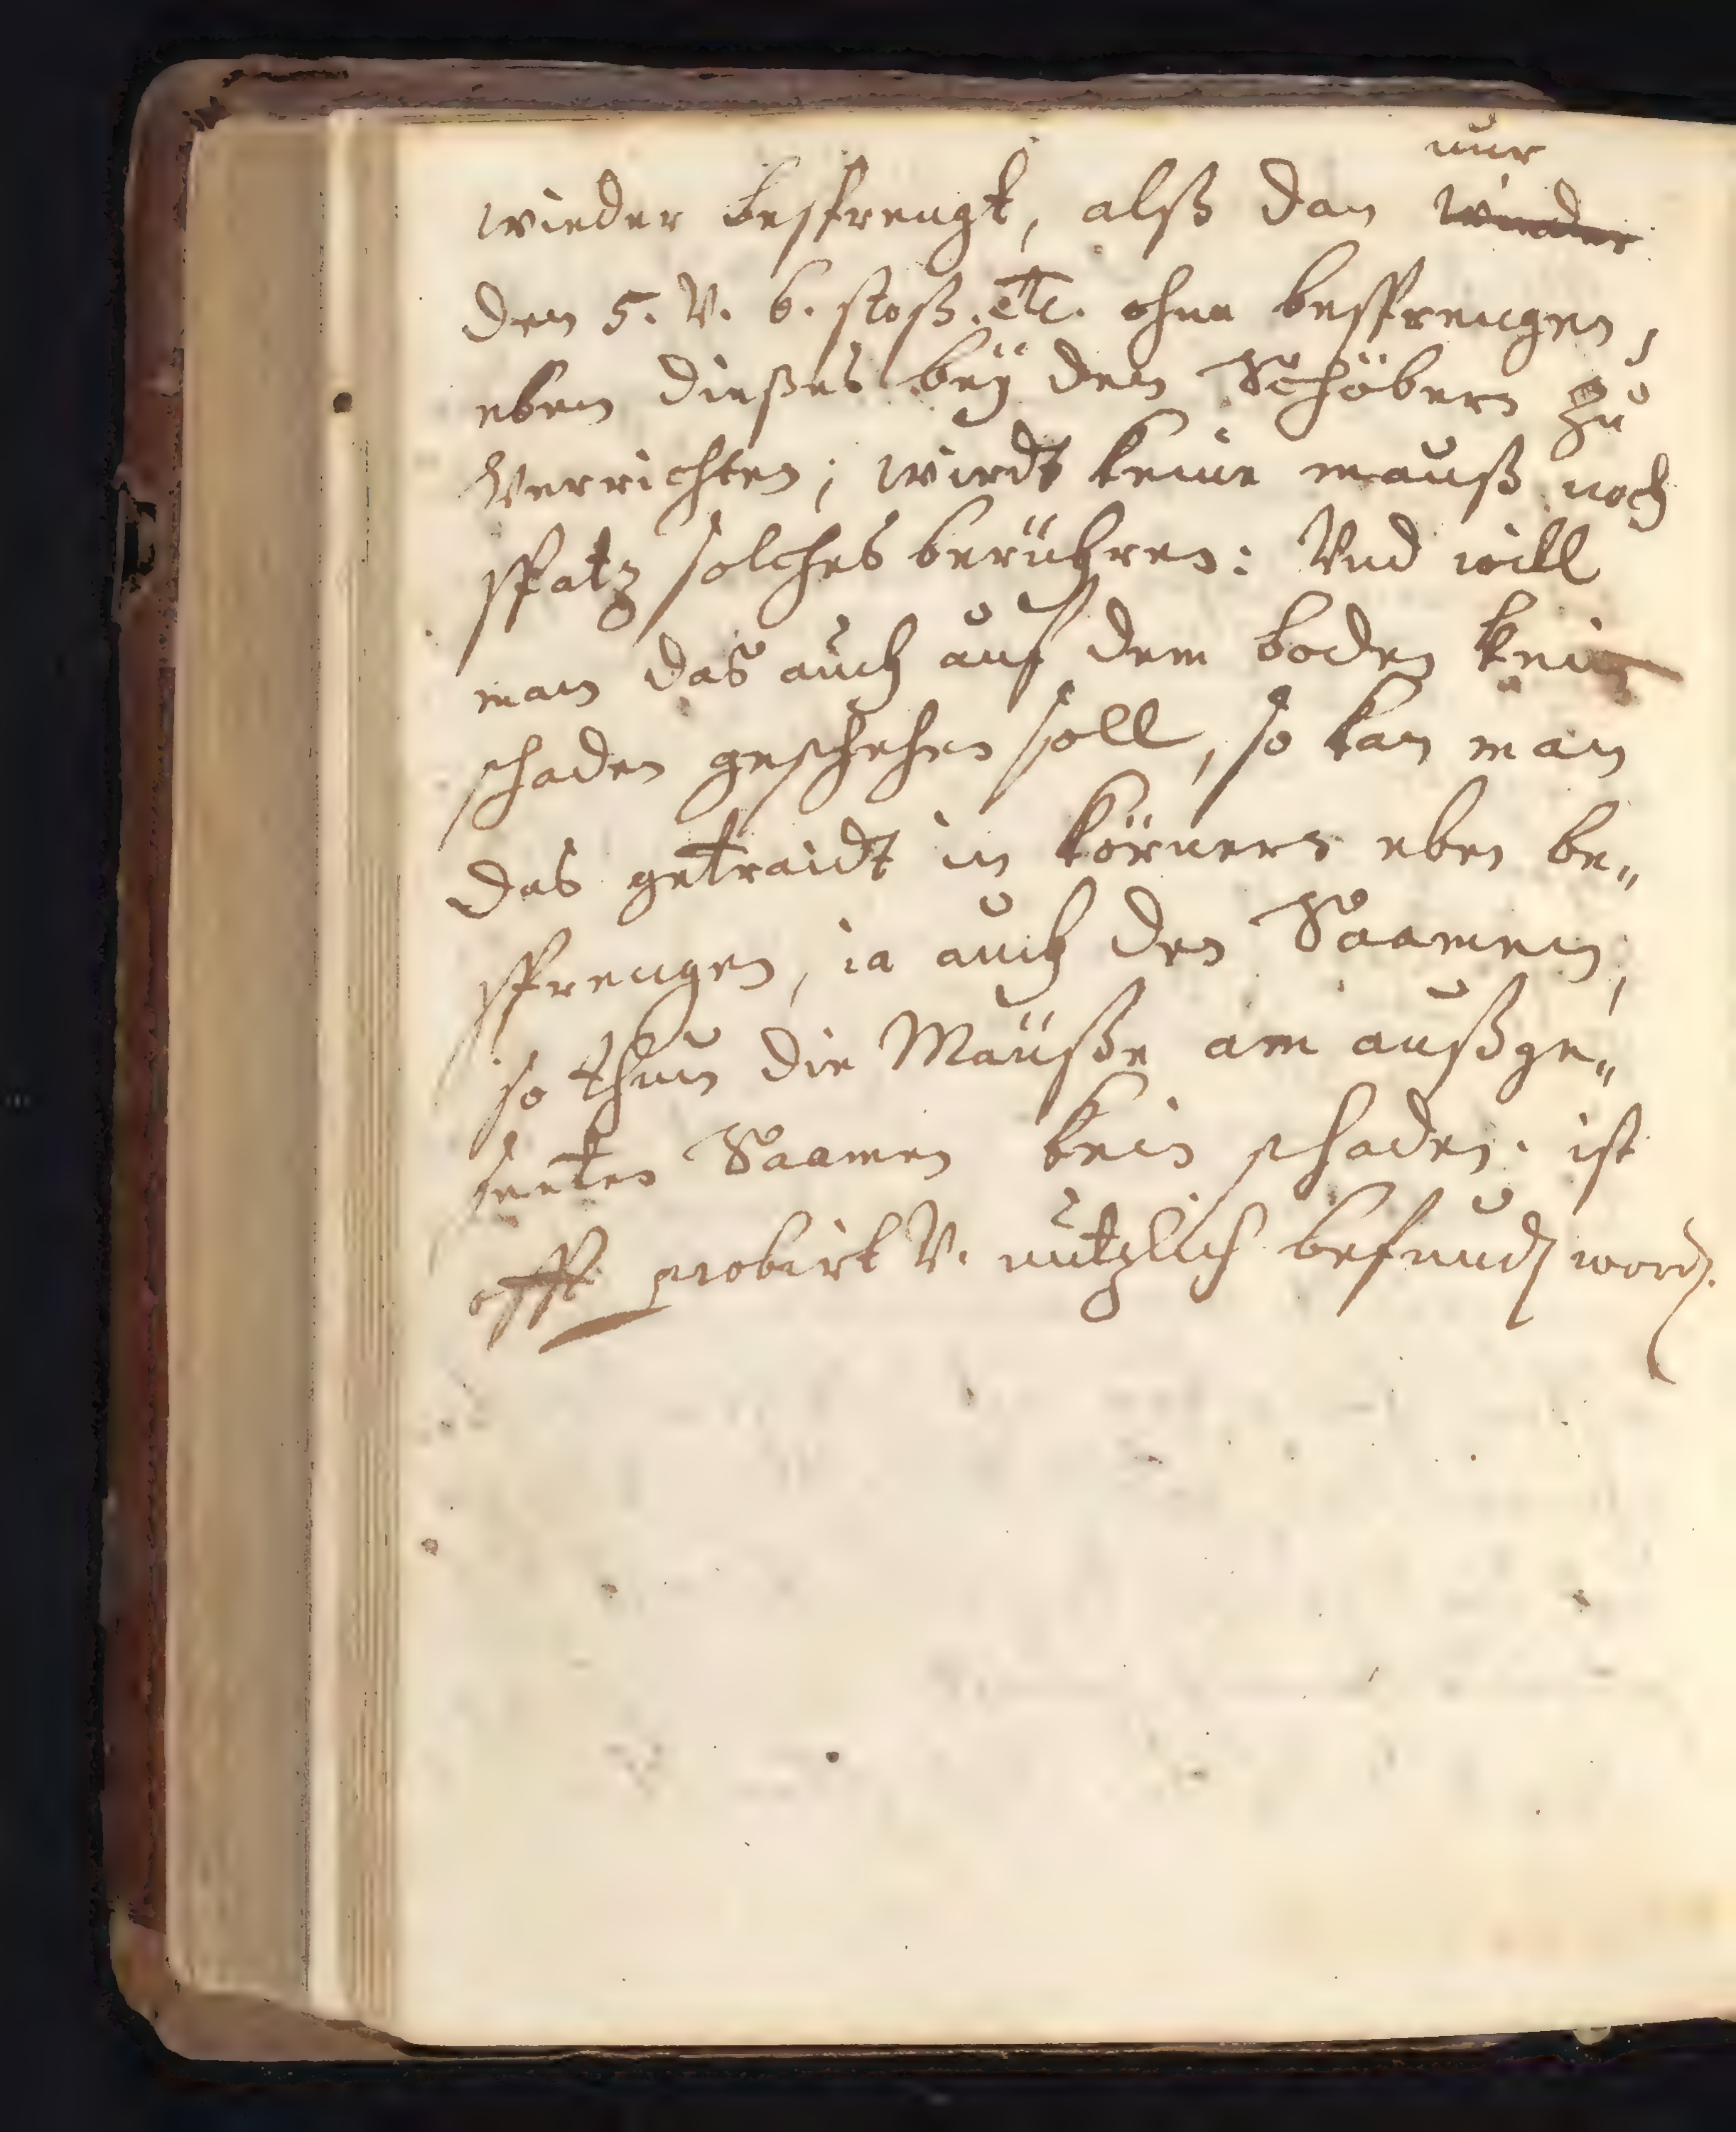 nur
wieder besprengt, alß dan wieder
den 5. V. 6. stoß. etc. ohne besprengen,
eben dießes beÿ den Schöbern zu
Verrichten; wirdt keine mauß noch
spatz solches berühren: Vnd will
man das auch auf dem boden kein
schaden geschehen soll, so kan man
das getraidt in körnern eben be„
sprengen, ia auch den Saamen,
so thun die Mäuße am außge„
seeten Saamen kein schaden. ist
offt probirt V. nützlich befund word.